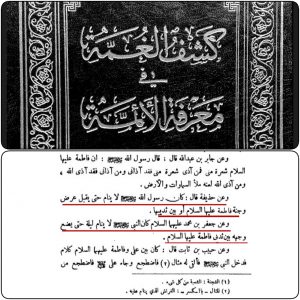 كشف الغمة
في
معرفة الأئمة
وعن جابر بن عبدالله قال : قال رسول الله ﷺ : ان فاطمة عليها
السلام شعرة مني فمن آذى شعرة مني فقد آذاني ومن آذاني فقد آذى الله ،
ومن آذى الله لعنه ملأ السماوات والأرض .
وعن حذيفة قال : كان رسول الله ﷺ لا ينام حتى يقبل عرض
وجنة فاطمة عليها السلام أو بين ثدييها .
وعن جعفر بن محمد عليهما السلام كان النبي ﷺ لا ينام ليلة حتى يضع
وجهه بين ثديي فاطمة عليها السلام .
وعن حبيب بن ثابت قال : كان بين علي وفاطمة عليهما السلام كلام
فدخل النبي ﷺ فألقى له مثال (٢) فاضطجع وجاء علي فاضطجع من